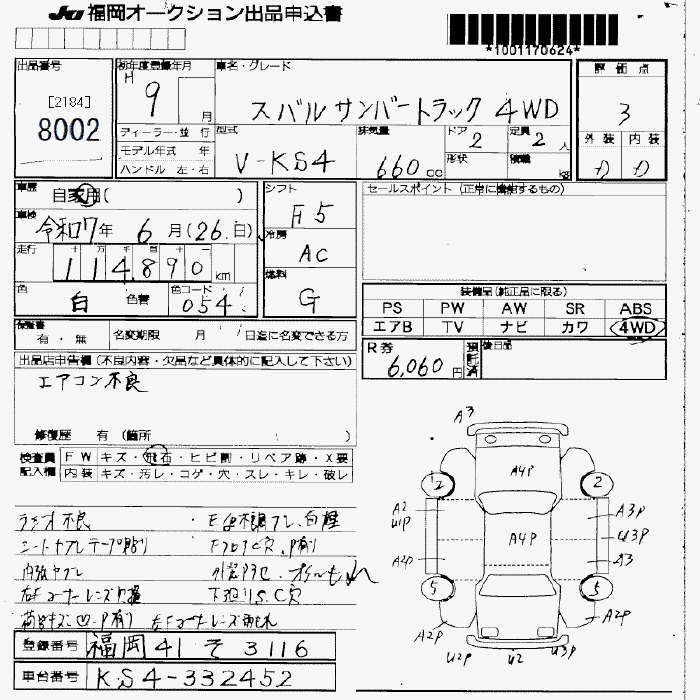 JU 福岡オークション出品申込書
*1001170624*
出品番号
[2184]
8002
初年度登録年月
H 9 月
車名・グレード
スバル サンバートラック 4WD
評価点
3
ディーラー・並行
モデル年式 年
ハンドル 左・右
型式
V-KS4
排気量
660 cc
ドア
2
形状
定員
2 人
積載
kg
外装 内装
D D
車歴
自家用( )
車検
令和7年 6月(26日)
走行
十 万 千 百 十
114,890 km
色
白
色替
色コード
054
シフト
F5
冷房
AC
燃料
G
セールスポイント (正常に機能するもの)
装備品(純正品に限る)
PS PW AW SR ABS
エアB TV ナビ カワ 4WD
保証書
有・無
名変期限 月 日迄に名変できる方
R券
6,060円
預託済
後日品
出品店申告欄(不良内容・欠品など具体的に記入して下さい)
エアコン不良
修復歴 有 (箇所 )
検査員記入欄
FW キズ・飛石・ヒビ割・リペア跡・X要
内装 キズ・汚レ・コゲ・穴・スレ・キレ・破レ
ラジオ不良
シートヤブレテープ貼り
内張ヤブレ
登録番号
福岡 41 そ 3116
車台番号
KS4-332452
A3
A4P
A4P
12
2
A2
U1P
A2P
A3P
U3P
A3
5
5
A2P
A2P
U2P
U2
U3P